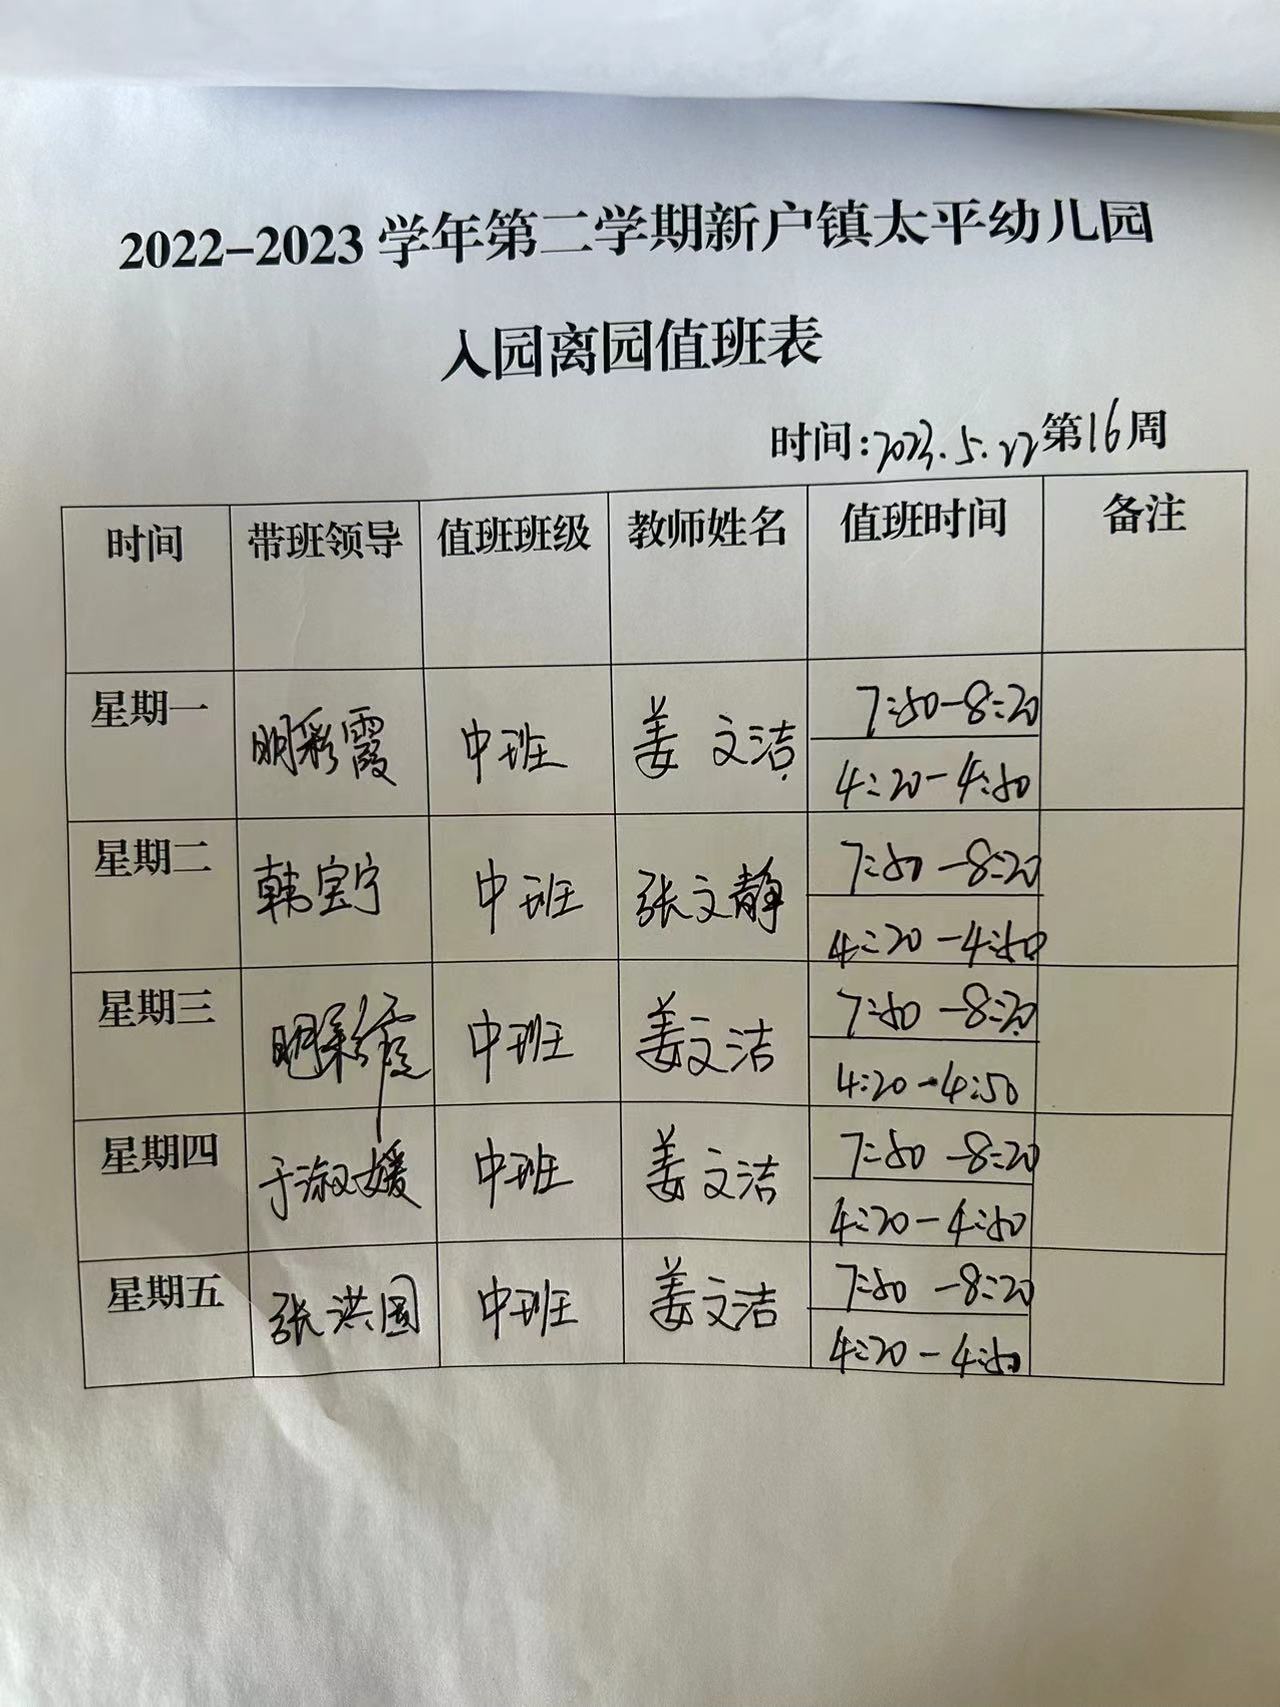 2022-2023 学年第二学期新户镇太平幼儿园
入园离园值班表
时间:2023.5.22第16周
时间 带班领导 值班班级 教师姓名 值班时间 备注
星期一 明彩霞 中班 姜文洁 7:50-8:20
4:20-4:50
星期二 韩宝宁 中班 张文静 7:50-8:20
4:20-4:50
星期三 明彩霞 中班 姜文洁 7:50-8:20
4:20-4:50
星期四 于淑媛 中班 姜文洁 7:50-8:20
4:20-4:50
星期五 张洪国 中班 姜文洁 7:50-8:20
4:20-4:50